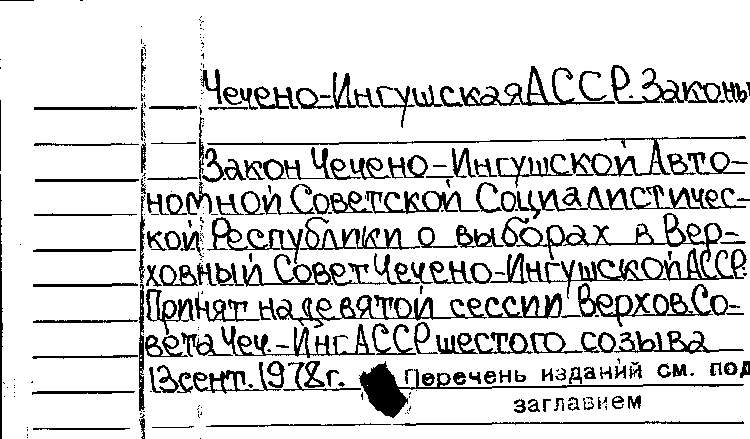 Чечено-Ингушская АССР. Законы
Закон Чечено-Ингушской Авто-
номной Советской Социалистичес-
кой Республики о выборах в Вер-
ховный Совет Чечено-Ингушской АССР.
Принят на девятой сессии Верхов. Со-
вета Чеч.-Инг. АССР шестого созыва
13 сент. 1978 г. Перечень изданий см. под
заглавием